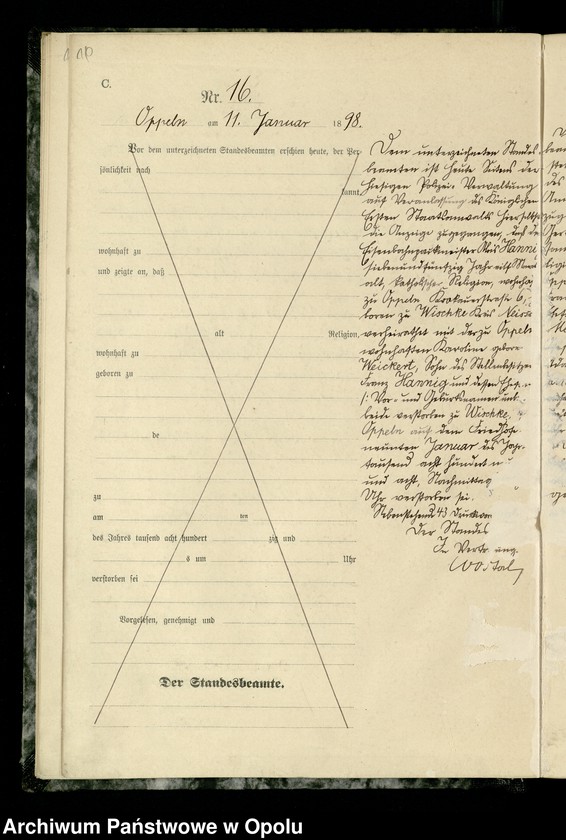 C.
Nr. 16.
Oppeln am 11. Januar 1898.
Vor dem unterzeichneten Standesbeamten erschien heute, der Per-
sönlichkeit nach
kannt,
wohnhaft zu
und zeigte an, daß
alt Religion,
wohnhaft zu
geboren zu
de
zu
am ten
des Jahres tausend acht hundert zig und
s um Uhr
verstorben sei
Vorgelesen, genehmigt und
Der Standesbeamte.
Dem unterzeichneten Standes-
beamten ist heute Seitens der
hiesigen Polizei-Verwaltung
auf Veranlassung des Königlichen
Ersten Staatsanwalts hierselbst
die Anzeige zugegangen, daß de
Eisenbahn Hanni
siebenundfünfzig Jahre
alt, katholischer Religion, wohnhaf
zu Oppeln Krakauerstraße 6,
boren zu Wischke Kreis Neisse
verheirathet mit der zu Oppeln
wohnhaften Karoline gebore
Weickert, Sohn des Stellenbesitzer
Franz Hannig und dessen Ehe
/: Vor- und Geburtsnamen unb
beide verstorben zu Wischke,
Oppeln auf dem
neunten Januar des Jahr
tausend acht hundert n
und acht, Nachmittag
Uhr verstorben sei.
Nebenstehend 43 Druckwor
Der Standes
In Vertr.
Wostal
Archiwum Państwowe w Opolu